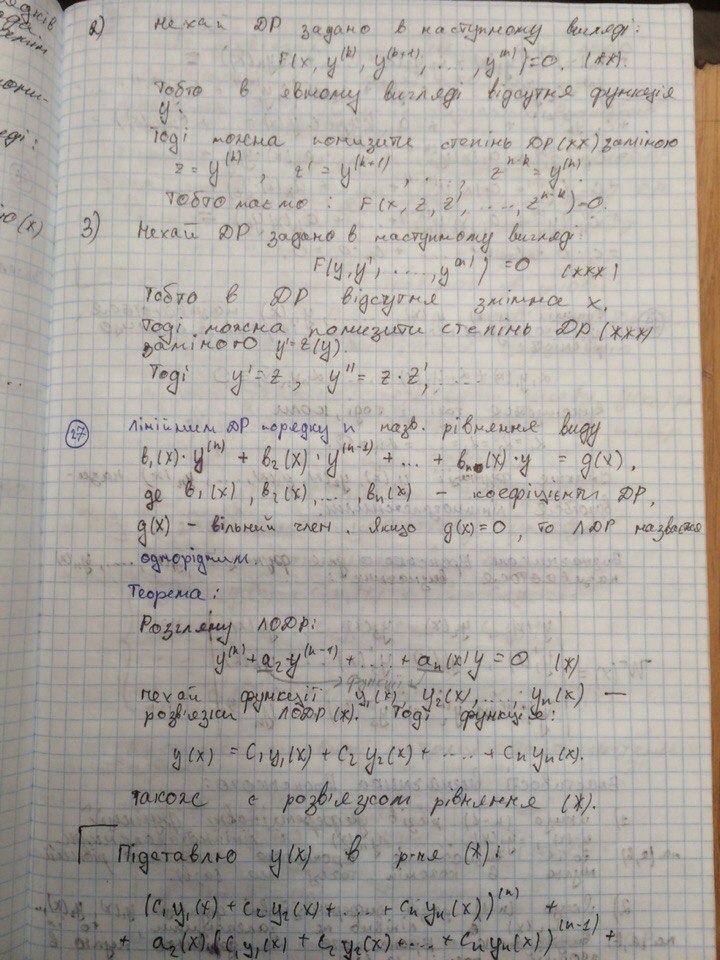 2) Нехай ДР задано в наступному вигляді:
F(x, y^(k), y^(k+1), ..., y^(n))=0. (xx).
Тобто в явному вигляді відсутня функція
y.
Тоді можна понизити степінь ДР(xx) заміною
z = y^(k), z' = y^(k+1), ..., z^n-k = y^(n).
Тобто маємо: F(x, z, z', ..., z^(n-k))=0.
3) Нехай ДР задано в наступному вигляді:
F(y, y', ..., y^(n)) = 0 (xxx)
Тобто в ДР відсутня змінна x.
Тоді можна понизити степінь ДР (xxx)
заміною y'=z(y).
Тоді y'=z, y''= z·z', ...
27 Лінійним ДР порядку n назв. рівняння виду
b₁(x)·y^(n) + b₂(x)·y^(n-1) + ... + bn(x)·y = g(x),
де b₁(x), b₂(x), ..., bn(x) - коефіцієнти ДР,
g(x) - вільний член. Якщо g(x)=0, то ЛДР назвається
однорідним.
Теорема:
Розгляну ЛОДР:
y^(n) + a₂·y^(n-1) + ... + an(x)y = 0 (x)
функції
нехай функції y₁(x), y₂(x), ..., yn(x) —
розв'язки ЛОДР(x). Тоді функція:
y(x) = C₁y₁(x) + C₂y₂(x) + ... + Cnyn(x).
також є розв'язком рівняння (x).
Підставлю y(x) в р-ня (x):
(C₁y₁(x) + C₂y₂(x) + ... + Cnyn(x))^(n) +
+ a₂(x)(C₁y₁(x) + C₂y₂(x) + ... + Cnyn(x))^(n-1) +